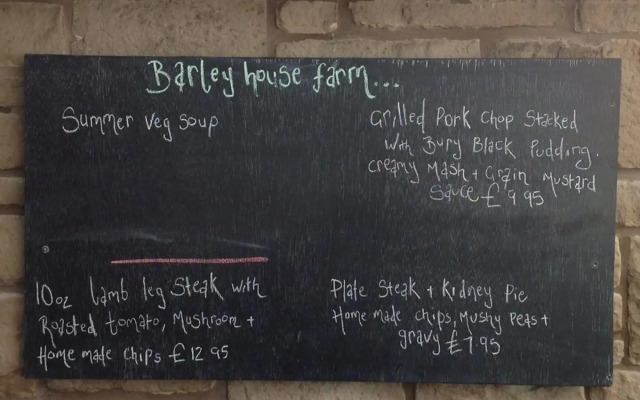 Barley house farm...
Summer veg soup
Grilled Pork Chop Stacked
With Bury Black Pudding.
creamy Mash + Grain Mustard
Sauce £9.95
10oz lamb leg Steak with
Roasted tomato, Mushroom +
Home made chips £12.95
Plate Steak + Kidney Pie
Home made chips, Mushy Peas +
gravy £7.95